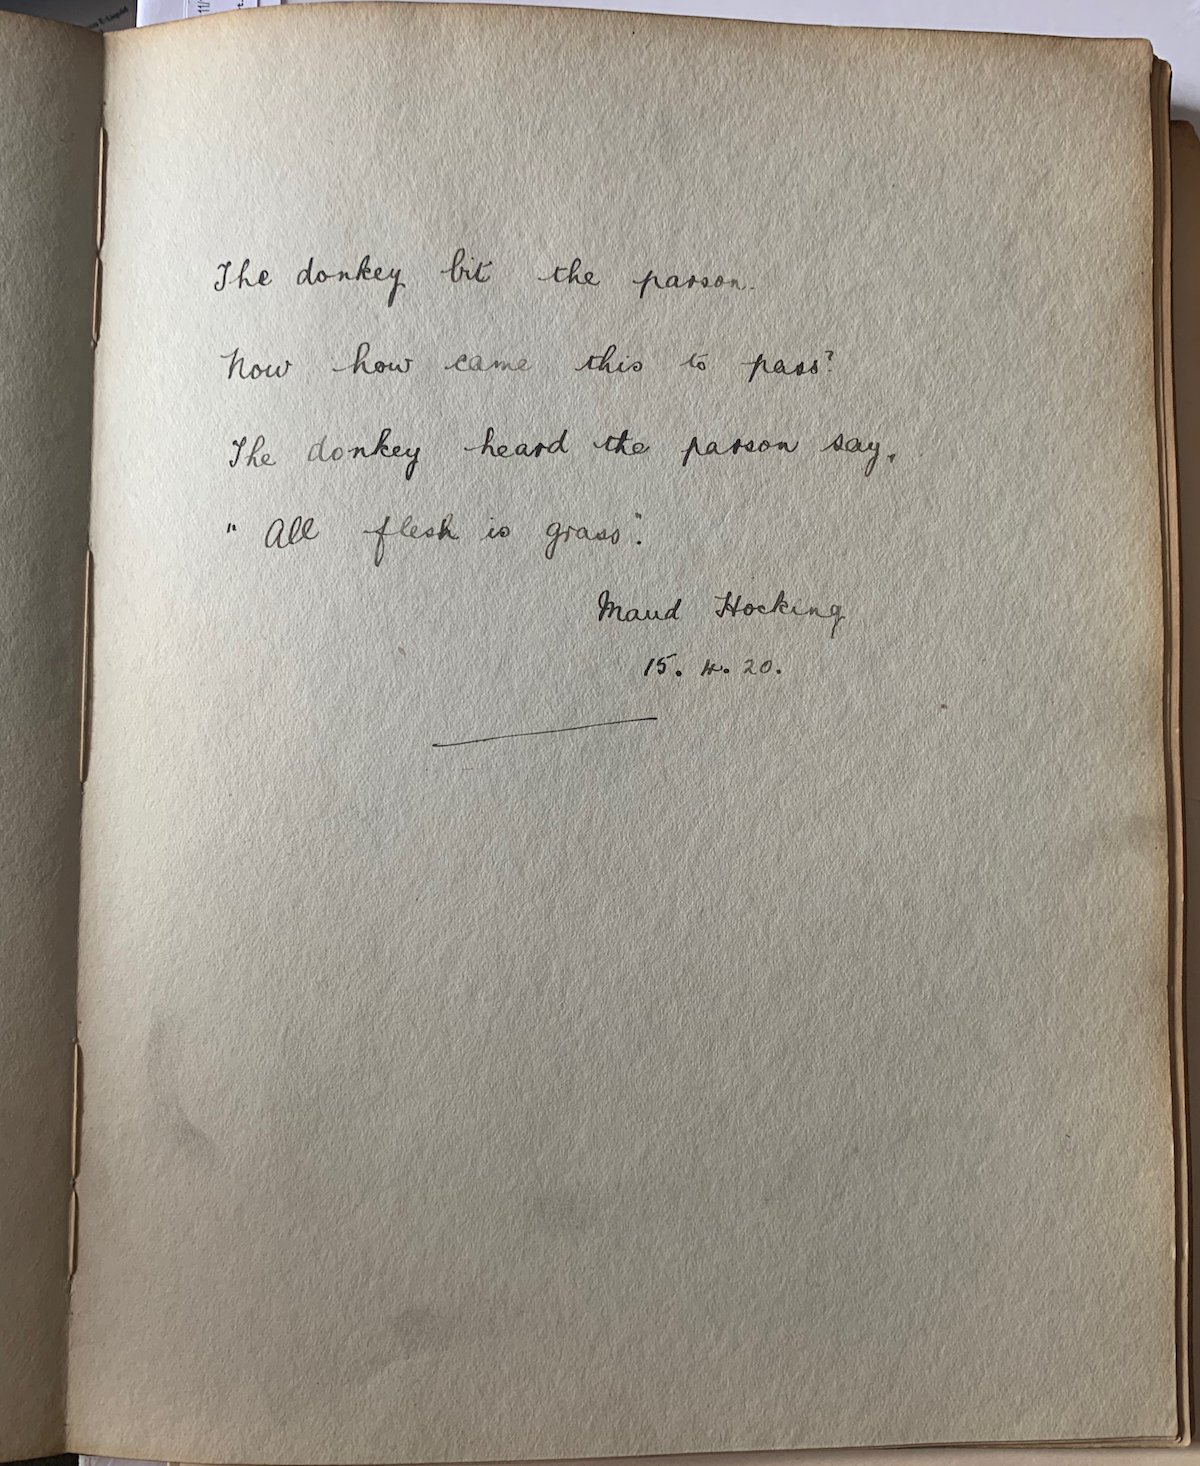 The donkey bit the parson.
Now how came this to pass?
The donkey heard the parson say,
"All flesh is grass".
Maud Hocking
15. 4. 20.